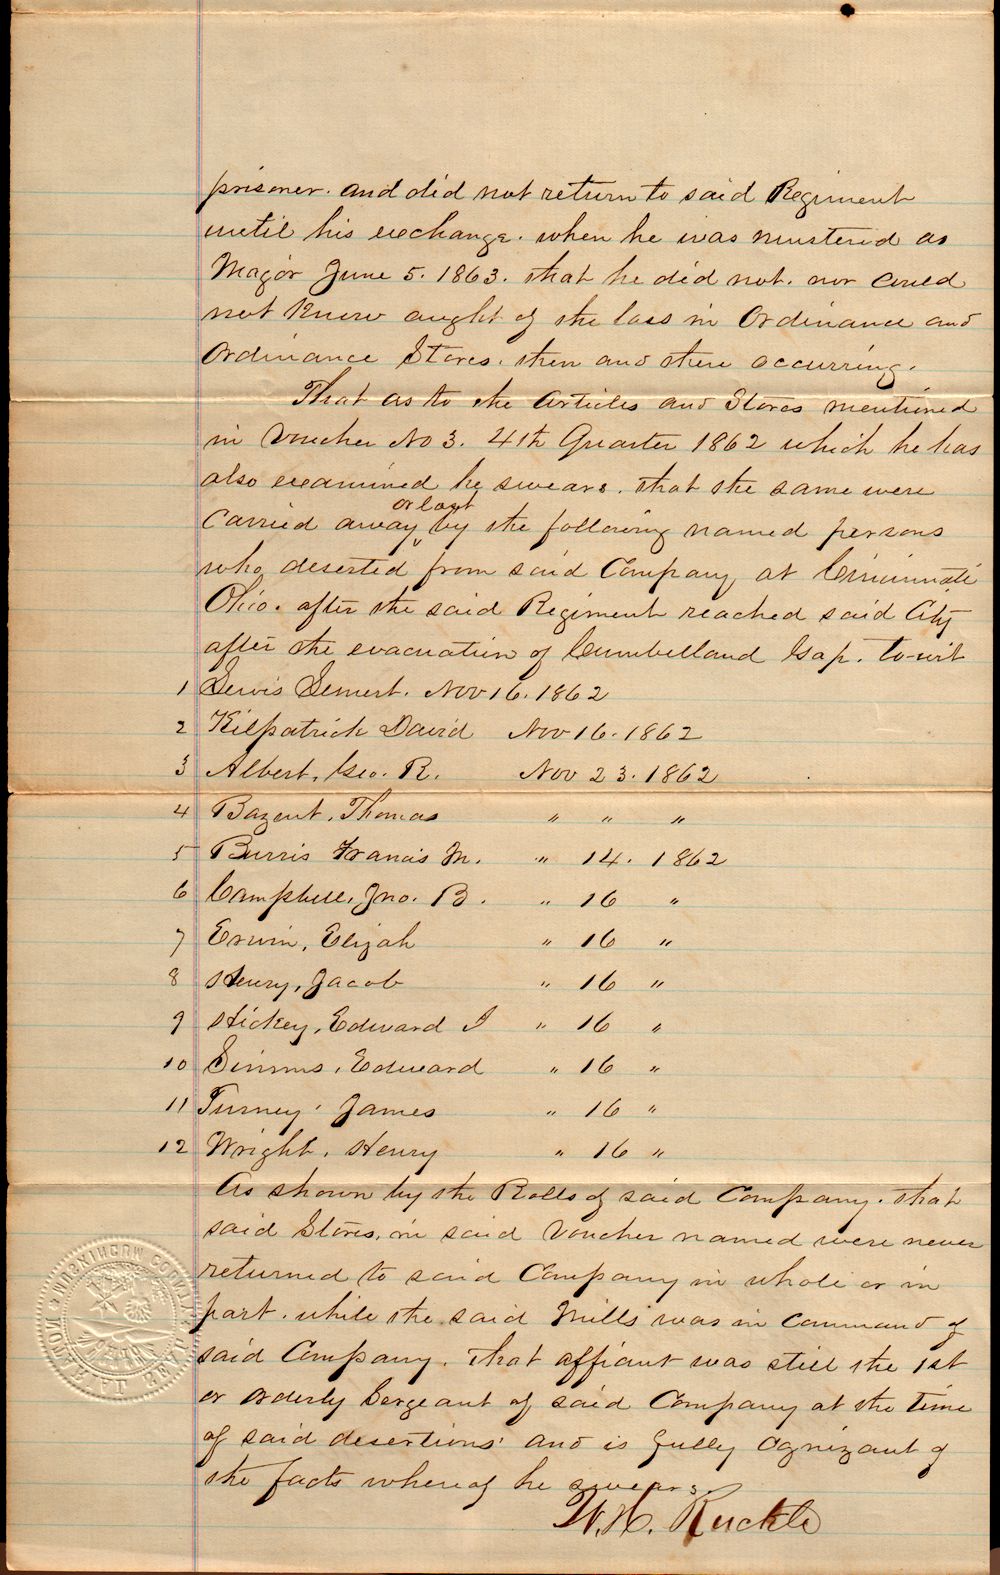 prisoner. and did not return to said Regiment
until his exchange. when he was mustered as
Major June 5. 1863. that he did not. nor could
not know aught of the loss in Ordinance and
Ordinance Stores. then and there occurring.
That as to the Articles and Stores mentioned
in Voucher No 3. 4th Quarter 1862 which he has
also examined he swears. that the same were
or lost
carried away by the following named persons
who deserted from said Company at Cincinnati
Ohio. after the said Regiment reached said City
after the evacuation of Cumbelland Gap. to-wit
1 Lewis Nov 16. 1862
2 Kilpatrick David Nov 16. 1862
3 Albert, Geo. R. Nov 23. 1862
4 Bazent, Thomas " " "
5 Burris Francis M. " 14. 1862
6 Campbell, Jno. B. " 16 "
7 Erwin, Elijah " 16 "
8 Henry, Jacob " 16 "
9 Hickey, Edward J " 16 "
10 Simms, Edward " 16 "
11 Turney, James " 16 "
12 Wright, Henry " 16 "
As shown by the Rolls of said Company. that
said Stores, in said Voucher named were never
returned to said Company in whole or in
part. while the said Mills was in Command of
said Company. That affiant was still the 1st
or Orderly Sergeant of said Company at the time
of said desertions and is fully Cognizant of
the facts whereof he swears.
W. H. Ruckle